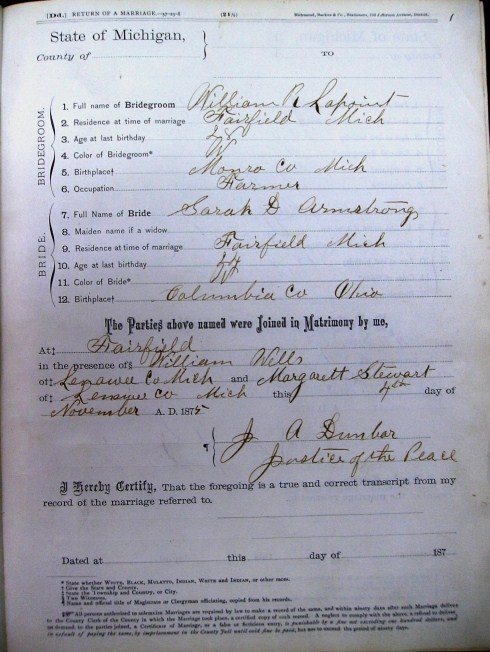 [Dd.] RETURN OF A MARRIAGE.
(21½)
1
State of Michigan,
County of
TO
BRIDEGROOM.
1. Full name of Bridegroom William R Lapoint
2. Residence at time of marriage Fairfield Mich
3. Age at last birthday
4. Color of Bridegroom* W
5. Birthplace† Monro Co Mich
6. Occupation Farmer
BRIDE.
7. Full Name of Bride Sarah D Armstrong
8. Maiden name if a widow
9. Residence at time of marriage Fairfield Mich
10. Age at last birthday
11. Color of Bride*
12. Birthplace† Columbia Co Ohio
The Parties above named were Joined in Matrimony by me,
At‡ Fairfield
in the presence of§ William Wells
of‡ Lenawee Co Mich and Margarett Stewart
of‡ Lenawee Co Mich this 4th day of
November A. D. 1875
¶ J A Dunbar
Justice of the Peace
I Hereby Certify, That the foregoing is a true and correct transcript from my
record of the marriage referred to.
Dated at this day of 187
* State whether WHITE, BLACK, MULATTO, INDIAN, WHITE and INDIAN, or other races.
† Give the State and County.
‡ State the Township and Country, or City.
§ Two Witnesses.
¶ Name and official title of Magistrate or Clergyman officiating, copied from his records.
All persons authorized to solemnize Marriages are required by law to make a record of the same, and within ninety days after such Marriage deliver
to the County Clerk of the County in which the Marriage took place, a certified copy of such record. A neglect to comply with the above, a refusal to deliver,
on demand, to the parties joined, a Certificate of Marriage, or a false or fictitious entry, is punishable by a fine not exceeding one hundred dollars, and
in default of paying the same, by imprisonment in the County Jail until said fine be paid, but not to exceed the period of ninety days.